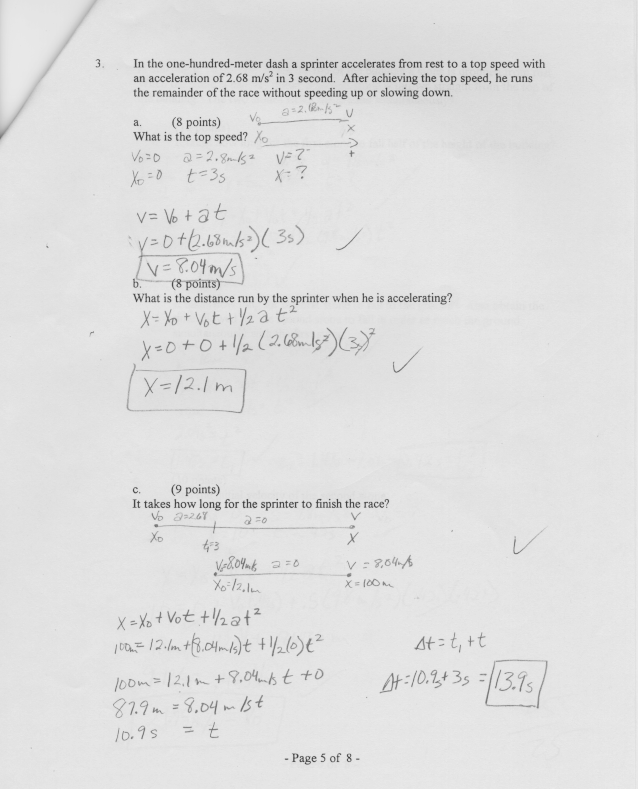 3. In the one-hundred-meter dash a sprinter accelerates from rest to a top speed with
an acceleration of 2.68 m/s² in 3 second. After achieving the top speed, he runs
the remainder of the race without speeding up or slowing down.
a. (8 points) V₀ a=2.68m/s² V
What is the top speed? X₀ X
V₀=0 a=2.8m/s² V=? +
X₀=0 t=3s X=?
V= V₀ + at
V=0+(2.68m/s²)(3s) ✓
V=8.04m/s
b. (8 points)
What is the distance run by the sprinter when he is accelerating?
X=X₀ + V₀t + 1/2 a t²
X=0+0+1/2 (2.68m/s²)(3s)²
✓
X=12.1 m
c. (9 points)
It takes how long for the sprinter to finish the race?
V₀ a=2.68 a=0 V
X₀ t₁=3 X ✓
V₀=8.04m/s a=0 V=8.04m/s
X₀=12.1m X=100m
X=X₀+V₀t+1/2at²
100m=12.1m+(8.04m/s)t+1/2(0)t² Δt=t₁+t
100m=12.1m+8.04m/s t+0 Δt=10.9s+3s=13.9s
87.9m=8.04m/st
10.9s = t
- Page 5 of 8 -